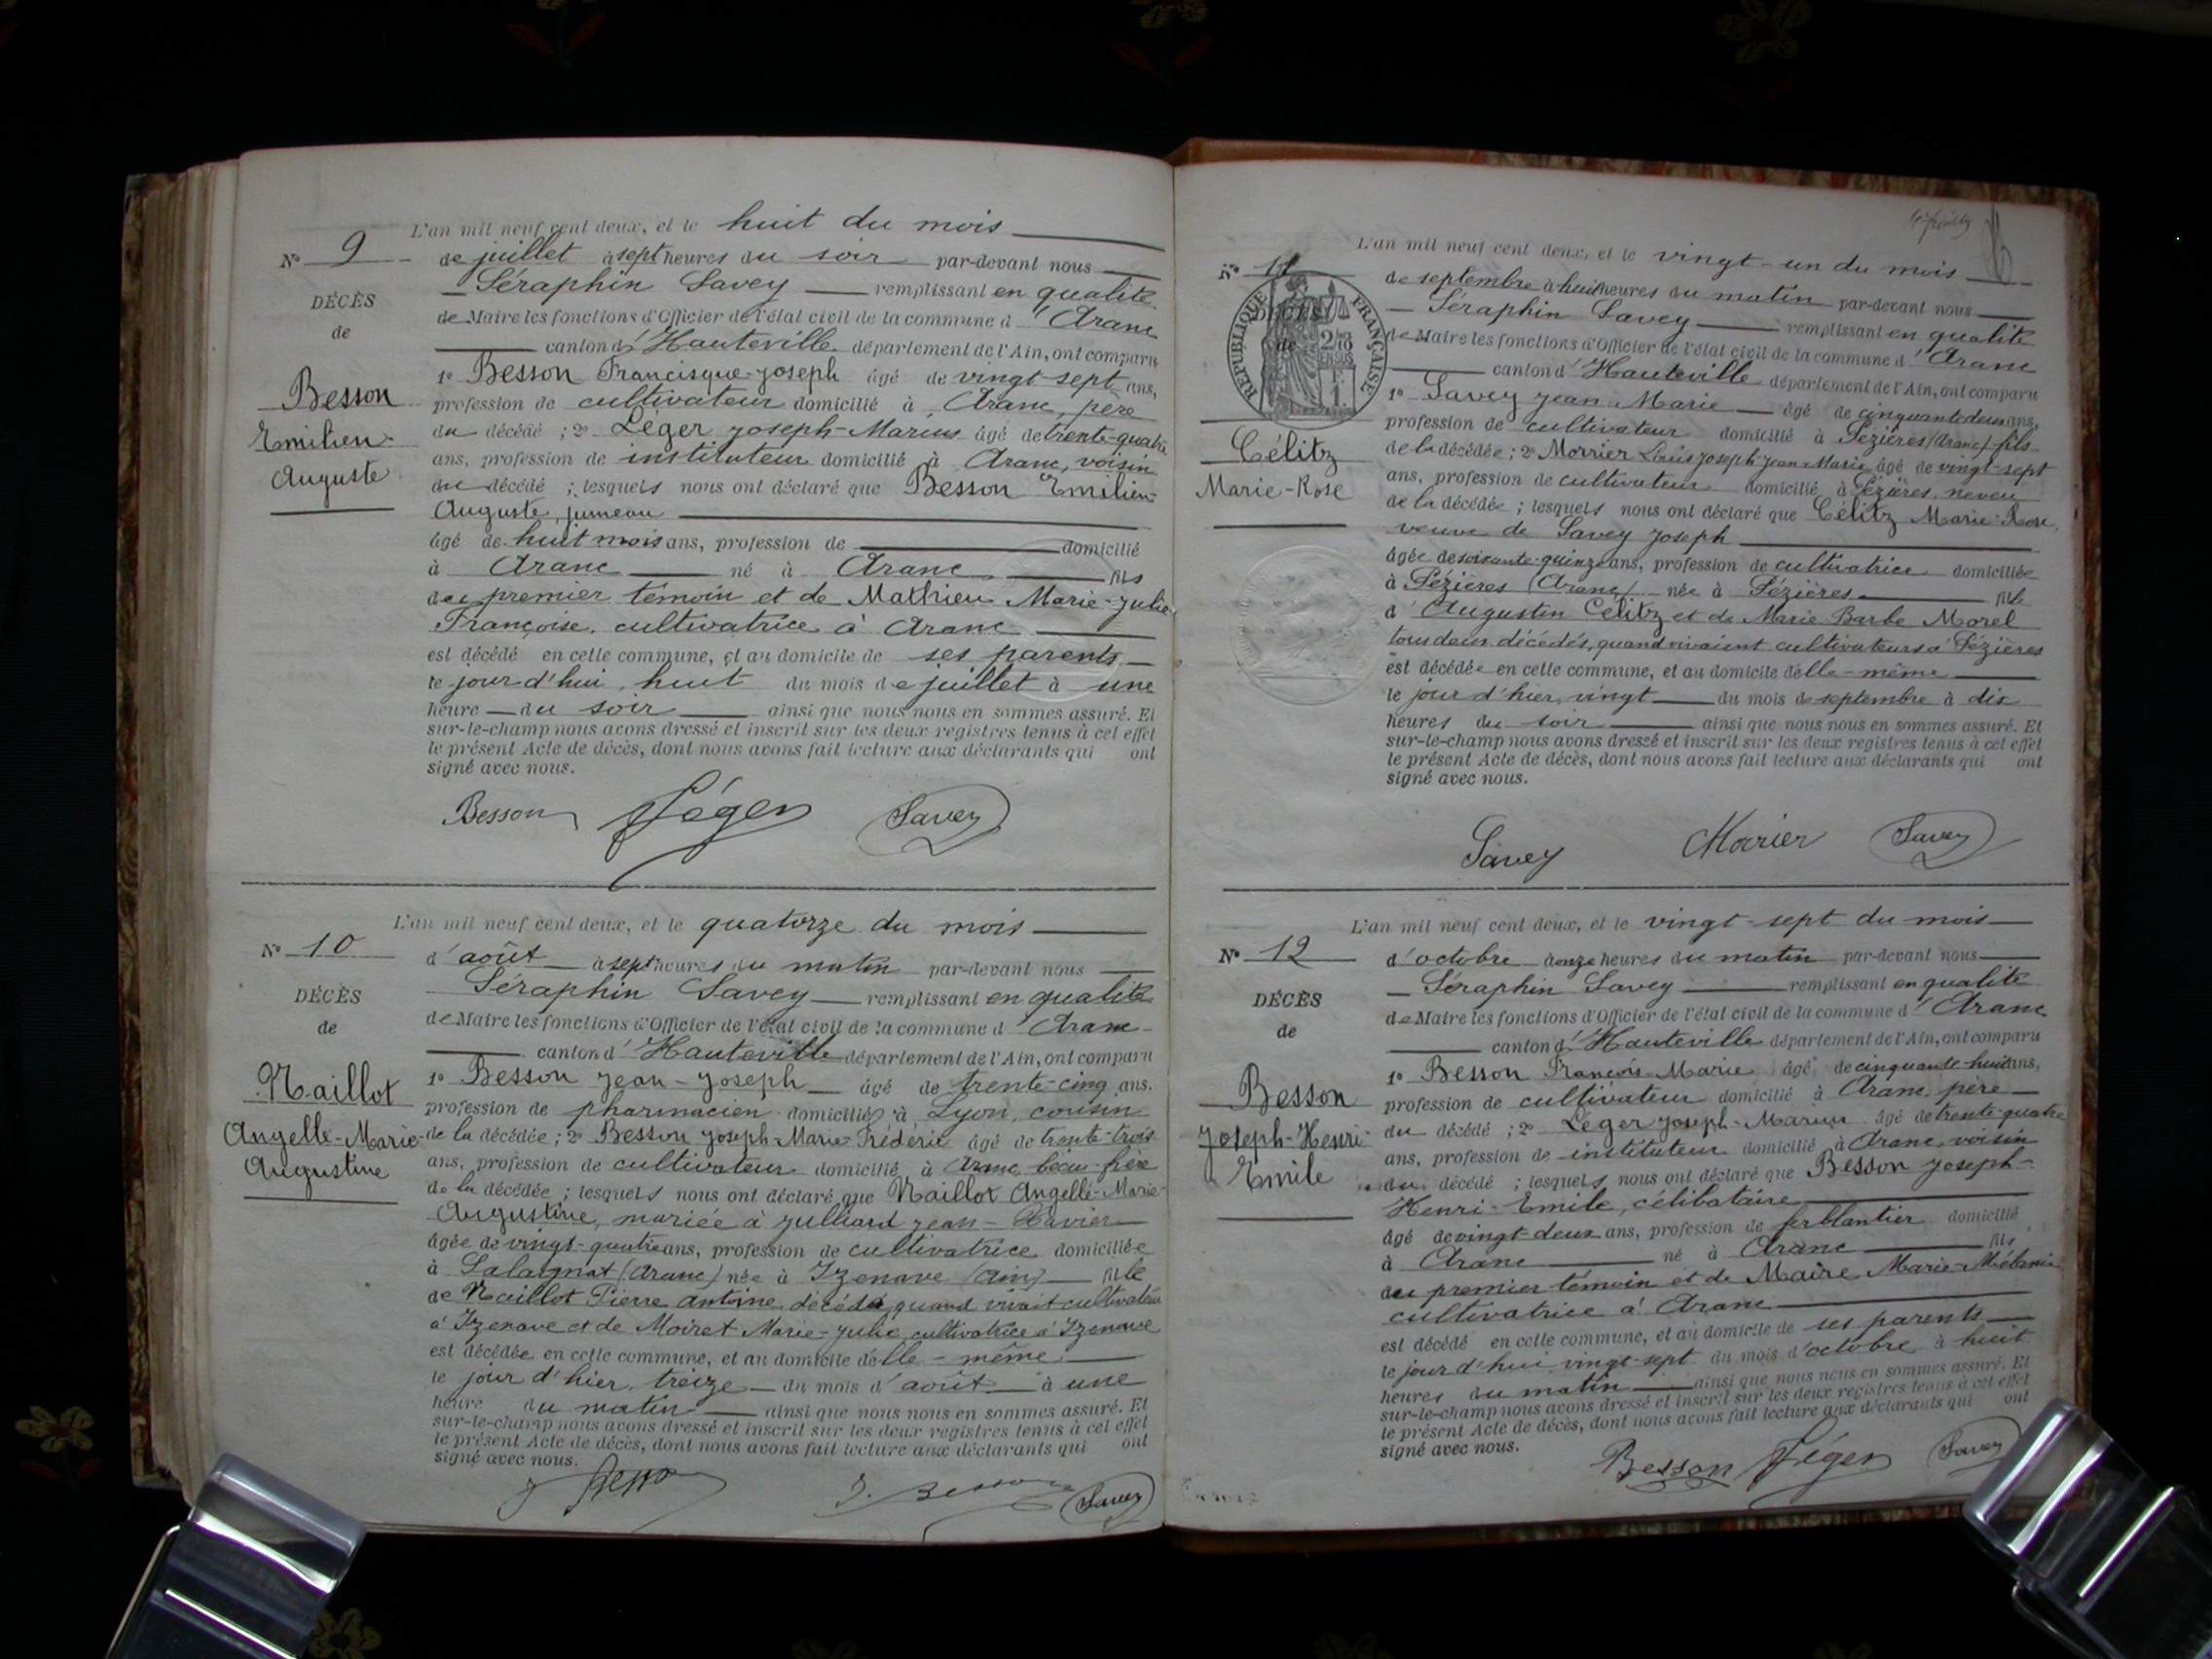 L'an mil neuf cent deux, et le huit du mois
N° 9
de juillet à sept heures du soir par-devant nous
Séraphin Savey remplissant en qualité
DÉCÈS
de Maire les fonctions d'Officier de l'état civil de la commune d'Aranc
de
canton d'Hauteville département de l'Ain, ont comparu
1° Besson Francisque-Joseph âgé de vingt-sept ans,
Besson
profession de cultivateur domicilié à Aranc, père
Emilien-
du décédé ; 2° Léger Joseph-Marius âgé de trente-quatre
ans, profession de instituteur domicilié à Aranc, voisin
Auguste
du décédé ; lesquels nous ont déclaré que Besson Emilien-
Auguste, jumeau
âgé de huit mois ans, profession de domicilié
à Aranc né à Aranc fils
du premier témoin et de Mathieu Marie-Julie
Françoise, cultivatrice à Aranc
est décédé en cette commune, et au domicile de ses parents
le jour d'hui, huit du mois de juillet à une
heure du soir ainsi que nous nous en sommes assuré. Et
sur-le-champ nous avons dressé et inscrit sur les deux registres tenus à cet effet
le présent Acte de décès, dont nous avons fait lecture aux déclarants qui ont
signé avec nous.
Besson Léger Savey
L'an mil neuf cent deux, et le quatorze du mois
N° 10
d'août à sept heures du matin par-devant nous
Séraphin Savey remplissant en qualité
DÉCÈS
de Maire les fonctions d'Officier de l'état civil de la commune d'Aranc
de
canton d'Hauteville département de l'Ain, ont comparu
1° Besson Jean-Joseph âgé de trente-cinq ans.
Naillot
profession de pharmacien domicilié à Lyon, cousin
Angelle-Marie-
de la décédée ; 2° Besson Joseph Marie Frédéric âgé de trente-trois
Augustine
ans, profession de cultivateur domicilié à Aranc beau-frère
de la décédée ; lesquels nous ont déclaré que Naillot Angelle-Marie-
Augustine, mariée à Julliard Jean-Xavier
âgée de vingt-quatre ans, profession de cultivatrice domiciliée
à Lalaignat (Aranc) née à Izenave (Ain) fille
de Naillot Pierre Antoine, décédé, quand vivait cultivateur
à Izenave et de Moiret Marie-Julie, cultivatrice à Izenave
est décédée en cette commune, et au domicile d'elle-même
le jour d'hier, treize du mois d'août à une
heure du matin ainsi que nous nous en sommes assuré. Et
sur-le-champ nous avons dressé et inscrit sur les deux registres tenus à cet effet
le présent Acte de décès, dont nous avons fait lecture aux déclarants qui ont
signé avec nous.
J Besson J. Besson Savey
L'an mil neuf cent deux, et le vingt-un du mois
N° 11
de septembre à huit heures du matin par-devant nous
Séraphin Savey remplissant en qualité
DÉCÈS
de
RÉPUBLIQUE FRANÇAISE
2/10 EN SUS
1 F.
de Maire les fonctions d'Officier de l'état civil de la commune d'Aranc
canton d'Hauteville département de l'Ain, ont comparu
1° Savey Jean Marie âgé de cinquante deux ans,
profession de cultivateur domicilié à Pézières (Aranc) fils
Célitz
de la décédée ; 2° Morrier Louis Joseph Jean-Marie âgé de vingt-sept
Marie-Rose
ans, profession de cultivateur domicilié à Pézières, neveu
de la décédée ; lesquels nous ont déclaré que Célitz Marie-Rose,
veuve de Savey Joseph
âgée de soixante-quinze ans, profession de cultivatrice domiciliée
à Pézières (Aranc) née à Pézières fille
d'Augustin Célitz et de Marie Barbe Morel
tous deux décédés, quand vivaient cultivateurs à Pézières
est décédée en cette commune, et au domicile d'elle-même
le jour d'hier, vingt du mois de septembre à dix
heures du soir ainsi que nous nous en sommes assuré. Et
sur-le-champ nous avons dressé et inscrit sur les deux registres tenus à cet effet
le présent Acte de décès, dont nous avons fait lecture aux déclarants qui ont
signé avec nous.
Savey Morier Savey
L'an mil neuf cent deux, et le vingt-sept du mois
N° 12
d'octobre à onze heures du matin par-devant nous
Séraphin Savey remplissant en qualité
DÉCÈS
de Maire les fonctions d'Officier de l'état civil de la commune d'Aranc
de
canton d'Hauteville département de l'Ain, ont comparu
1° Besson François-Marie âgé de cinquante-huit ans,
Besson
profession de cultivateur domicilié à Aranc, père
Joseph-Henri-
du décédé ; 2° Léger Joseph-Marius âgé de trente-quatre
Emile
ans, profession de instituteur domicilié à Aranc, voisin
du décédé ; lesquels nous ont déclaré que Besson Joseph-
Henri-Emile, célibataire
âgé de vingt-deux ans, profession de ferblantier domicilié
à Aranc né à Aranc fils
du premier témoin et de Maire Marie-Mélanie
cultivatrice à Aranc
est décédé en cette commune, et au domicile de ses parents
le jour d'hui vingt-sept du mois d'octobre à huit
heures du matin ainsi que nous nous en sommes assuré. Et
sur-le-champ nous avons dressé et inscrit sur les deux registres tenus à cet effet
le présent Acte de décès, dont nous avons fait lecture aux déclarants qui ont
signé avec nous.
Besson Léger Savey